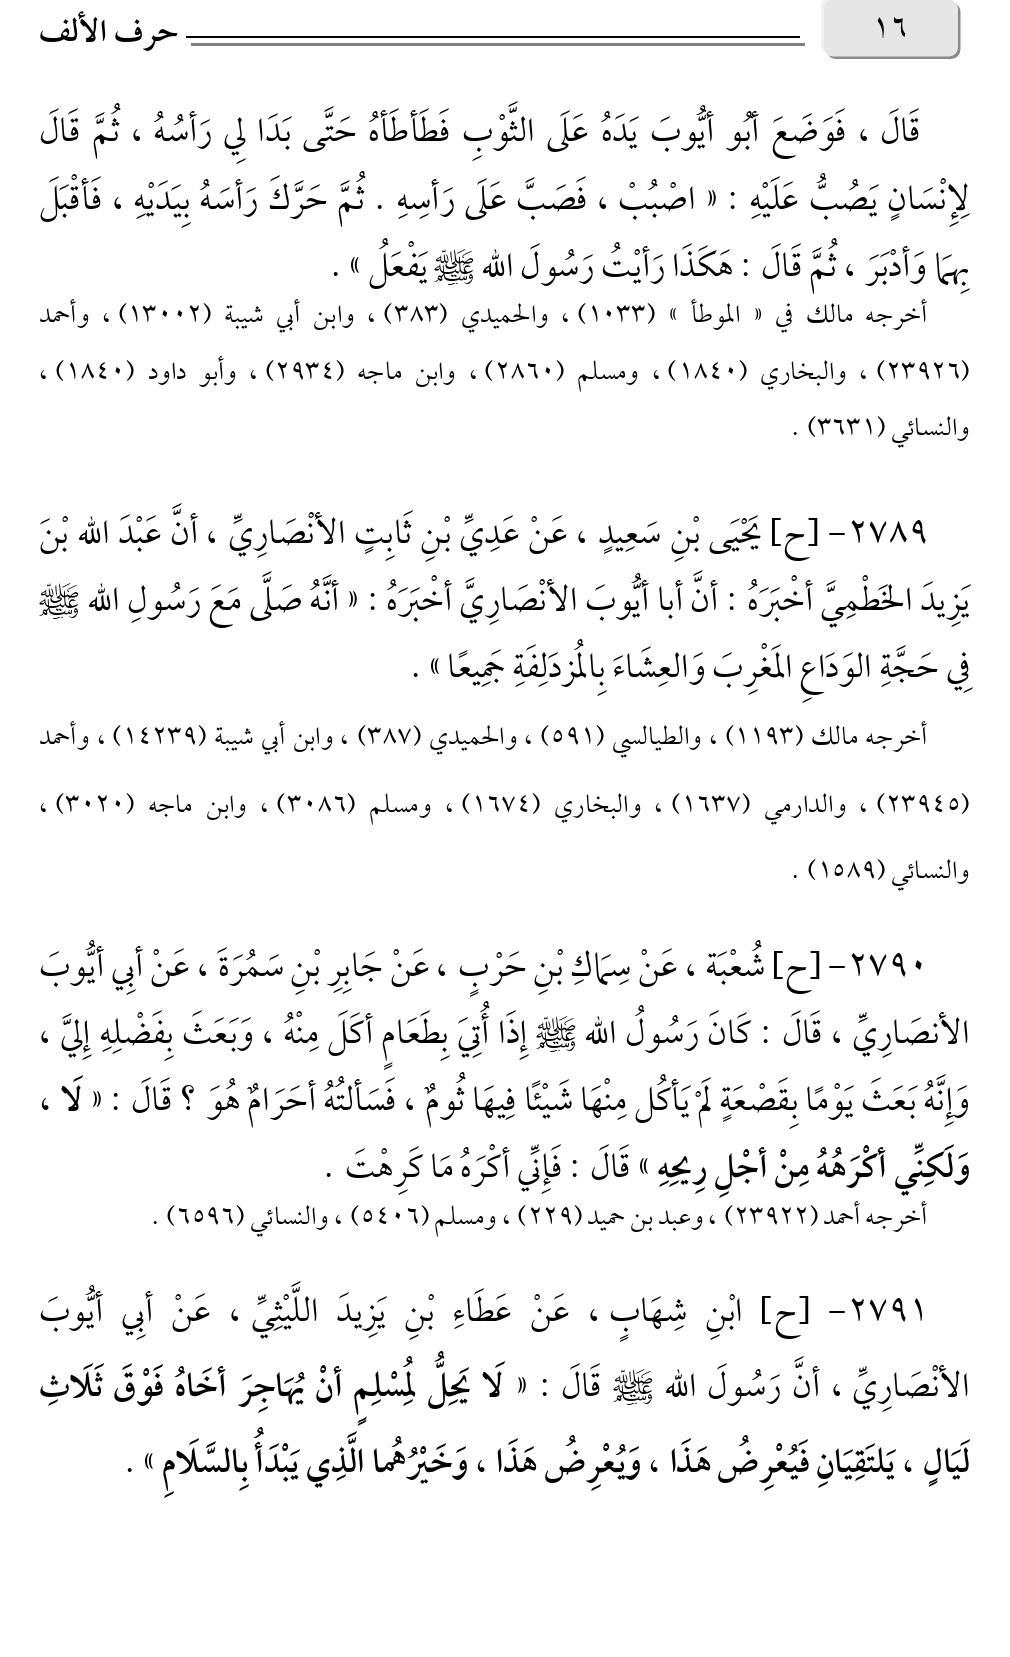 ١٦ حرف الألف
قَالَ ، فَوَضَعَ أبُو أيُّوبَ يَدَهُ عَلَى الثَّوْبِ فَطَأطَأهُ حَتَّى بَدَا لِي رَأسُهُ ، ثُمَّ قَالَ
لِإِنْسَانٍ يَصُبُّ عَلَيْهِ : « اصْبُبْ ، فَصَبَّ عَلَى رَأسِهِ . ثُمَّ حَرَّكَ رَأسَهُ بِيَدَيْهِ ، فَأقْبَلَ
بِهِمَا وَأدْبَرَ ، ثُمَّ قَالَ : هَكَذَا رَأيْتُ رَسُولَ الله ﷺ يَفْعَلُ » .
أخرجه مالك في « الموطأ » (١٠٣٣) ، والحميدي (٣٨٣) ، وابن أبي شيبة (١٣٠٠٢) ، وأحمد
(٢٣٩٢٦) ، والبخاري (١٨٤٠) ، ومسلم (٢٨٦٠) ، وابن ماجه (٢٩٣٤) ، وأبو داود (١٨٤٠) ،
والنسائي (٣٦٣١) .
٢٧٨٩- [ح] يَحْيَى بْنِ سَعِيدٍ ، عَنْ عَدِيِّ بْنِ ثَابِتٍ الأنْصَارِيِّ ، أنَّ عَبْدَ الله بْنَ
يَزِيدَ الخَطْمِيَّ أخْبَرَهُ : أنَّ أبا أيُّوبَ الأنْصَارِيَّ أخْبَرَهُ : « أنَّهُ صَلَّى مَعَ رَسُولِ الله ﷺ
فِي حَجَّةِ الوَدَاعِ المَغْرِبَ وَالعِشَاءَ بِالمُزدَلِفَةِ جَمِيعًا » .
أخرجه مالك (١١٩٣) ، والطيالسي (٥٩١) ، والحميدي (٣٨٧) ، وابن أبي شيبة (١٤٢٣٩) ، وأحمد
(٢٣٩٤٥) ، والدارمي (١٦٣٧) ، والبخاري (١٦٧٤) ، ومسلم (٣٠٨٦) ، وابن ماجه (٣٠٢٠) ،
والنسائي (١٥٨٩) .
٢٧٩٠- [ح] شُعْبَة ، عَنْ سِمَاكِ بْنِ حَرْبٍ ، عَنْ جَابِرِ بْنِ سَمُرَةَ ، عَنْ أبِي أيُّوبَ
الأنصَارِيِّ ، قَالَ : كَانَ رَسُولُ الله ﷺ إِذَا أُتِيَ بِطَعَامٍ أكَلَ مِنْهُ ، وَبَعَثَ بِفَضْلِهِ إِليَّ ،
وَإِنَّهُ بَعَثَ يَوْمًا بِقَصْعَةٍ لَمْ يَأكُل مِنْهَا شَيْئًا فِيهَا ثُومٌ ، فَسَألتُهُ أحَرَامٌ هُوَ ؟ قَالَ : « لَا ،
وَلَكِنِّي أكْرَهُهُ مِنْ أجْلِ رِيحِهِ » قَالَ : فَإِنِّي أكْرَهُ مَا كَرِهْتَ .
أخرجه أحمد (٢٣٩٢٢) ، وعبد بن حميد (٢٢٩) ، ومسلم (٥٤٠٦) ، والنسائي (٦٥٩٦) .
٢٧٩١- [ح] ابْنِ شِهَابٍ ، عَنْ عَطَاءِ بْنِ يَزِيدَ اللَّيْثِيِّ ، عَنْ أبِي أيُّوبَ
الأنْصَارِيِّ ، أنَّ رَسُولَ الله ﷺ قَالَ : « لَا يَحِلُّ لِمُسْلِمٍ أنْ يُهَاجِرَ أخَاهُ فَوْقَ ثَلَاثِ
لَيَالٍ ، يَلتَقِيَانِ فَيُعْرِضُ هَذَا ، وَيُعْرِضُ هَذَا ، وَخَيْرُهُما الَّذِي يَبْدَأُ بِالسَّلَامِ » .